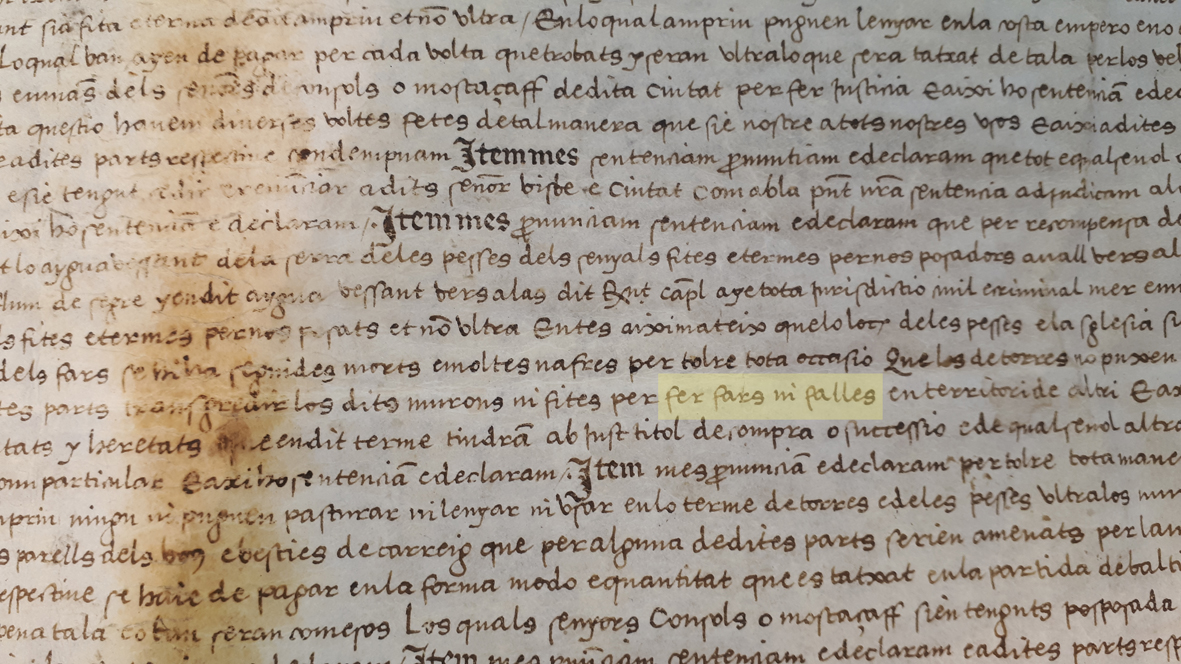 ant sia fita eterna dedit ampriu et nō ultra / En lo qual ampriu puguen lenyar en la costa empero en o
Lo qual ban agen de pagar per cada volta que trobats y seran ultra lo que sera tatxat de tala per los
en mās dels señors de consols o mostaçaff de dita Ciutat per fer Justicia E aixi ho sentēciā e
questio havem diverses voltes fetes de tal manera que sie nostre a tots nostres usos E aixi a dites
e a dites parts respective condempnam Item mes sentenciam pnuntiam e declaram que tot e qualsevol
e sie tengut cedir e renūciar a dits señor bisbe e Ciutat Com ab la pñt nrā sentencia adiudicam
aixi ho sentenciā e declaram / Item mes pnunciam sentenciam e declaram que per recompensa
lo aygua vessant de la serra de les pesses dels senyals fites e termes per nos posadors avall vers
de segre y en dit aygua vessant vers alas dit Rnt capl age tota jurisdictio civil e criminal mer
fites e termes per nos posats et nō ultra Entes aixi mateix que lo loch de les pesses e la sglesia
dels fars se seguides morts e moltes nafres per tolre tota occasio Que los de torres no puxen
parts transgredir los dits murons ni fites per fer fars ni falles en territori de altri E
y heretats que en dit terme tindrā ab Just titol de compra o successio e de qualsevol
particular E axi ho sentenciā e declaram / Item mes pnunciā e declaram per tolre tota
ampriu ningu ni puguen pasturar ni lenyar ni usar en lo terme de torres e de les pesses ultra los
parells dels bous e besties de carreig que per alguna de dites parts serien amenats per
respective se haie de pagar en la forma modo e quantitat que es tatxat en la partida de balti
pena tala e o ban seran comesos Los quals senyors Consols o mostaçaff sien tenguts posposada
Item mes pnūciam sentenciam e declaram e a dites parts